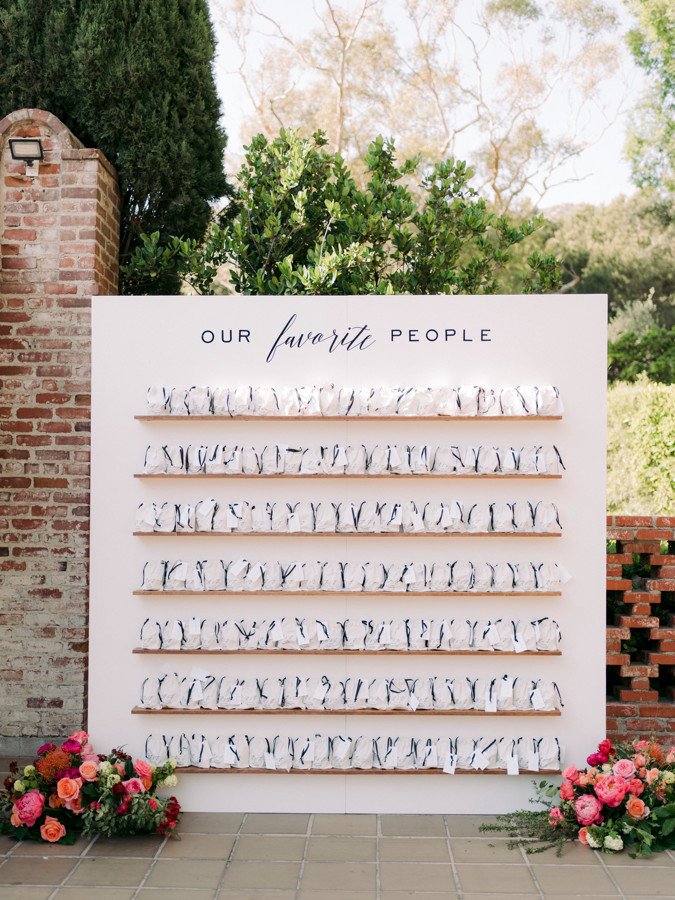 OUR favorite PEOPLE